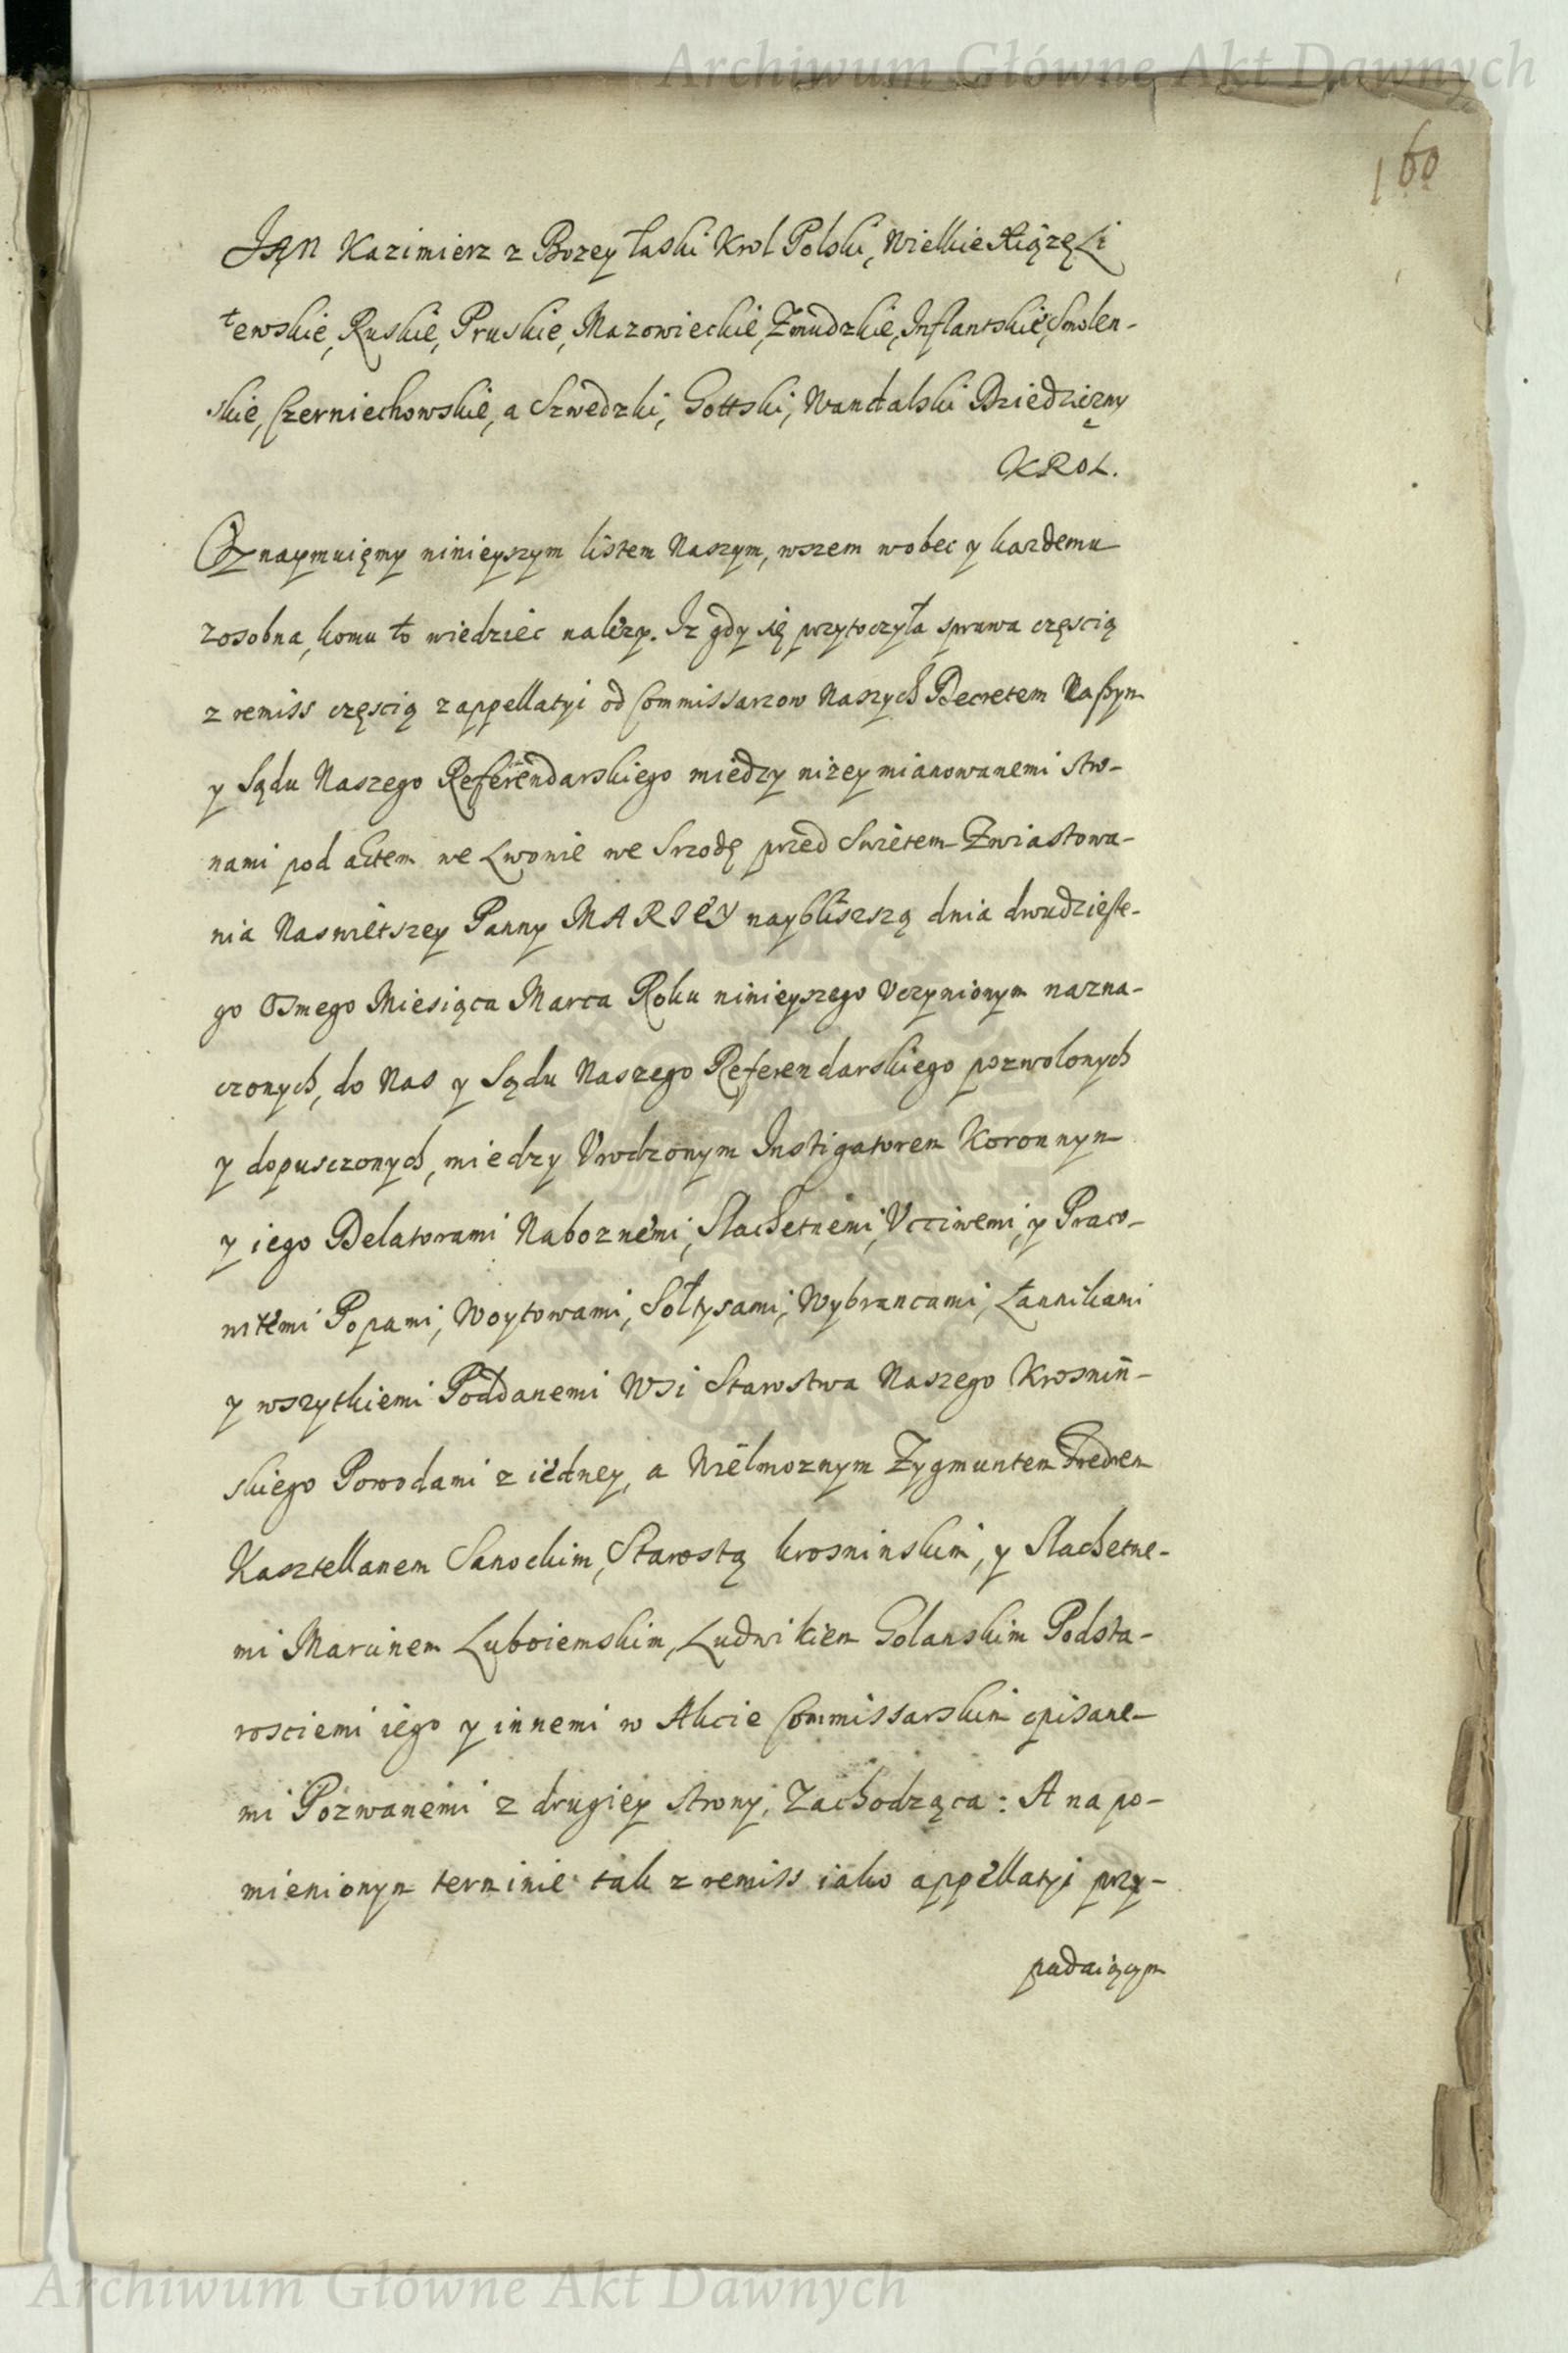 Archiwum Główne Akt Dawnych
160
JAN Kazimierz z Bozey łaski Krol Polski, Wielkie Xiązę Li
tewskie, Ruskie, Pruskie, Mazowieckie, Zmudzkie, Inflantskie, Smolen-
skie, Czerniechowskie, a Szwedzki, Gottski, Wandalski Dziedziczny
KROL.
Oznaymuięmy ninieyszym listem Naszym, wszem wobec y kazdemu
zosobna, komu to wiedziec nalezy. Iz gdy się przytoczyła sprawa częscią
z remiss częscią z appellatyi od Commissarzow Naszych Decretem Naszym
y Sądu Naszego Referendarskiego między nizey mianowanemi stro-
nami pod aktem we Lwowie we Srzodę przed Swietem Zwiastowa-
nia Naswietszey Panny MARIEY naybliszszą dnia dwudzieste-
go Osmego Miesiąca Marca Roku ninieyszego Vczynionym nazna-
czonych, do Nas y Sądu Naszego Referendarskiego pozwolonych
y dopusczonych, miedzy Vrodzonym Instigatorem Koronnym
y iego Delatorami Naboznemi, Slachetnemi, Vcciwemi, y Praco-
witemi Popami, Woytowami, Sołtysami, Wybrancami, Łannikami
y wszytkiemi Poddanemi Wsi Starostwa Naszego Krosnin-
skiego Powodami z iedney, a Wielmoznym Zygmuntem Fredrem
Kasztellanem Sanockim, Starostą krosninskim, y Slachetne-
mi Marcinem Luboiemskim, Ludwikiem Golanskim Podsta-
rosciemi iego y innemi w Akcie Commissarskim opisane-
mi Pozwanemi z drugiey strony, Zachodząca: A na po-
mienionym terminie tak z remiss iako appellatyi przy-
padaiącym
Archiwum Główne Akt Dawnych